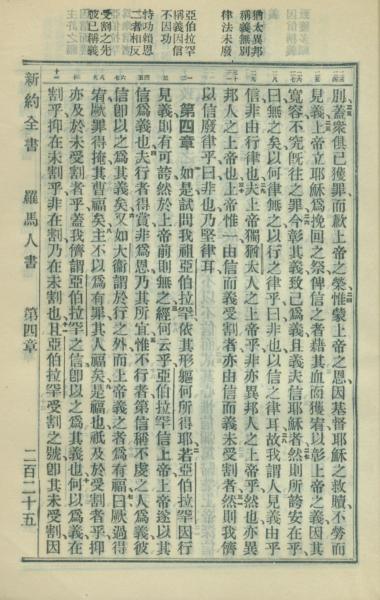 猶太異邦
稱義無別
律法未廢
亞伯拉罕
稱義因信
不因功
特功賴恩
二者相反
受割之先
彼已稱義
別蓋衆俱已獲罪而歉上帝之榮惟蒙上帝之恩因基督耶穌之救贖不勞而
見義上帝立耶穌爲挽回之祭俾信之者藉其血而獲宥以彰上帝之義因其
寬容不究旣往之罪今彰其義致已爲義且義夫信耶穌者然則所誇安在乎
曰無之矣以何律無之以行之律乎曰非也以信之律耳故我謂人見義由乎
信非由行律也夫上帝獨猶太人之上帝乎非亦異邦人之上帝乎然也亦異
邦人之上帝也上帝惟一由信而義受割者亦由信而義未受割者然則我儕
以信廢律乎曰非也乃堅律耳
第四章 如是試問我祖亞伯拉罕依其形軀何所得耶若亞伯拉罕因行
見義則有可誇然於上帝前則無之經何云乎亞伯拉罕信上帝上帝遂以其
信爲義也夫行者得賞非爲恩乃其所宜惟不行者第信稱不虔之人爲義彼
信卽以之爲其義矣又如大衞謂於行之外而上帝義之者爲有福曰厥過得
宥厥罪得掩其曹福矣主不以爲有罪其人福矣是福也祇及於受割者乎抑
亦及於未受割者乎蓋我儕謂亞伯拉罕之信卽以之爲其義也何以爲義在
割乎抑在未割乎非在割乃在未割也且亞伯拉罕受割之號卽其未受割因
新約全書 羅馬人書 第四章 二百二十五